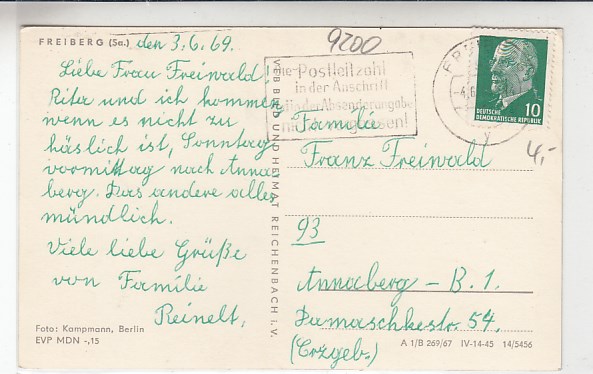 FREIBERG (Sa.) den 3.6.69.
Liebe Frau Freiwald!
Rita und ich kommen,
wenn es nicht zu
häslich ist, Sonntag
vormittag nach Anna-
berg. Das andere alles
mündlich.
Viele liebe Grüße
von Familie
Reinelt.
Foto: Kampmann, Berlin
EVP MDN -,15
VEB BILD UND HEIMAT REICHENBACH i. V.
9200
Postleitzahl
in der Anschrift
in der Absenderangabe
DEUTSCHE
DEMOKRATISCHE REPUBLIK
10
4,-
Familie
Franz Freiwald
93
Annaberg - B. 1.
Damaschkestr. 54.
(Erzgeb.)
A 1/B 269/67 IV-14-45 14/5456